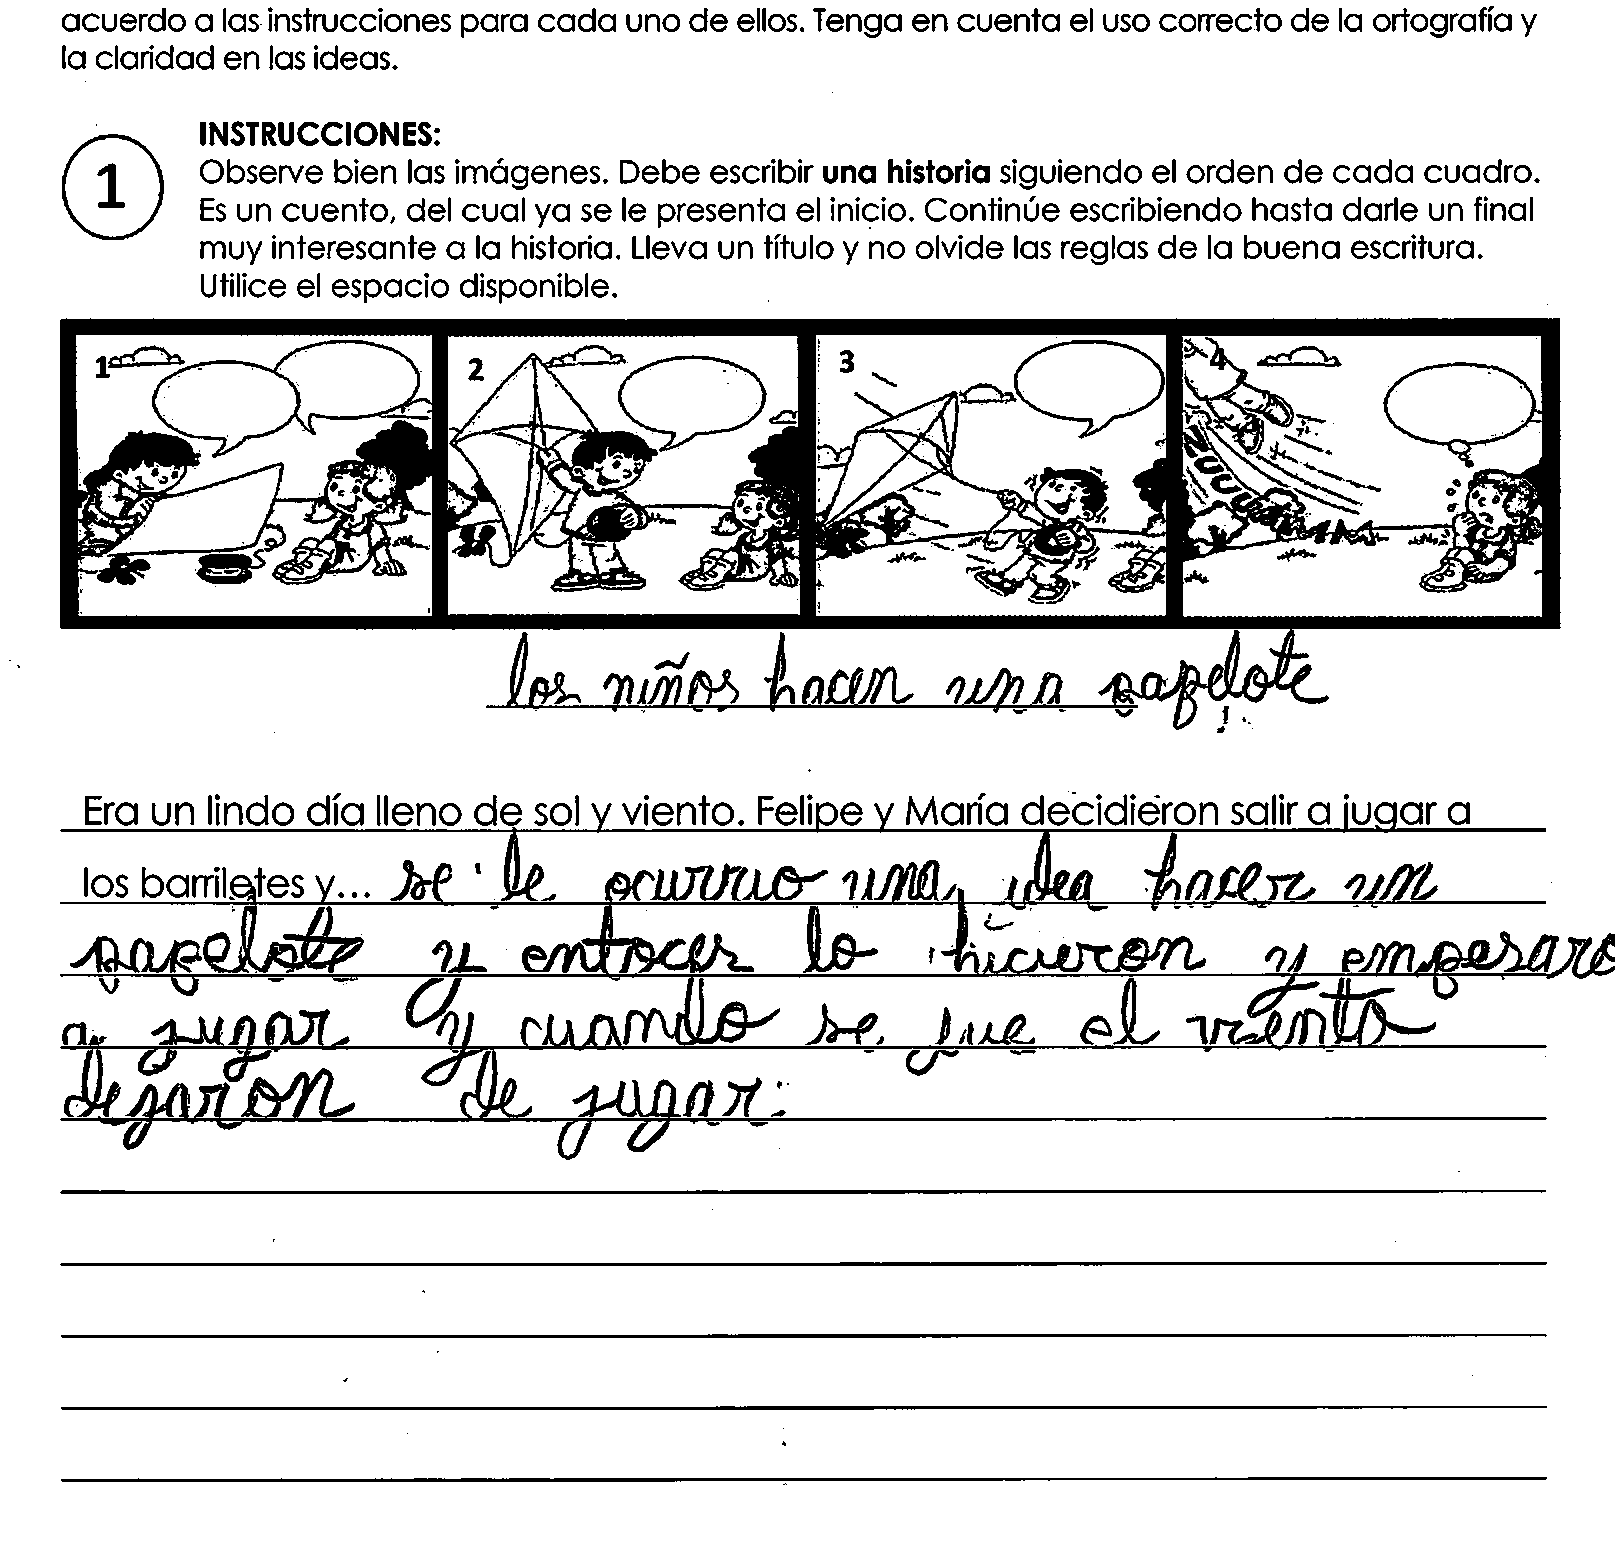 acuerdo a las instrucciones para cada uno de ellos. Tenga en cuenta el uso correcto de la ortografía y
la claridad en las ideas.
1
INSTRUCCIONES:
Observe bien las imágenes. Debe escribir una historia siguiendo el orden de cada cuadro.
Es un cuento, del cual ya se le presenta el inicio. Continúe escribiendo hasta darle un final
muy interesante a la historia. Lleva un título y no olvide las reglas de la buena escritura.
Utilice el espacio disponible.
1 2 3 4
los niños hacen una papelote
Era un lindo día lleno de sol y viento. Felipe y María decidieron salir a jugar a
los barriletes y... se le ocurrio una idea hacer un
papelote y entoces lo hicieron y empesaro
a jugar y cuando se fue el viento
dejaron de jugar.